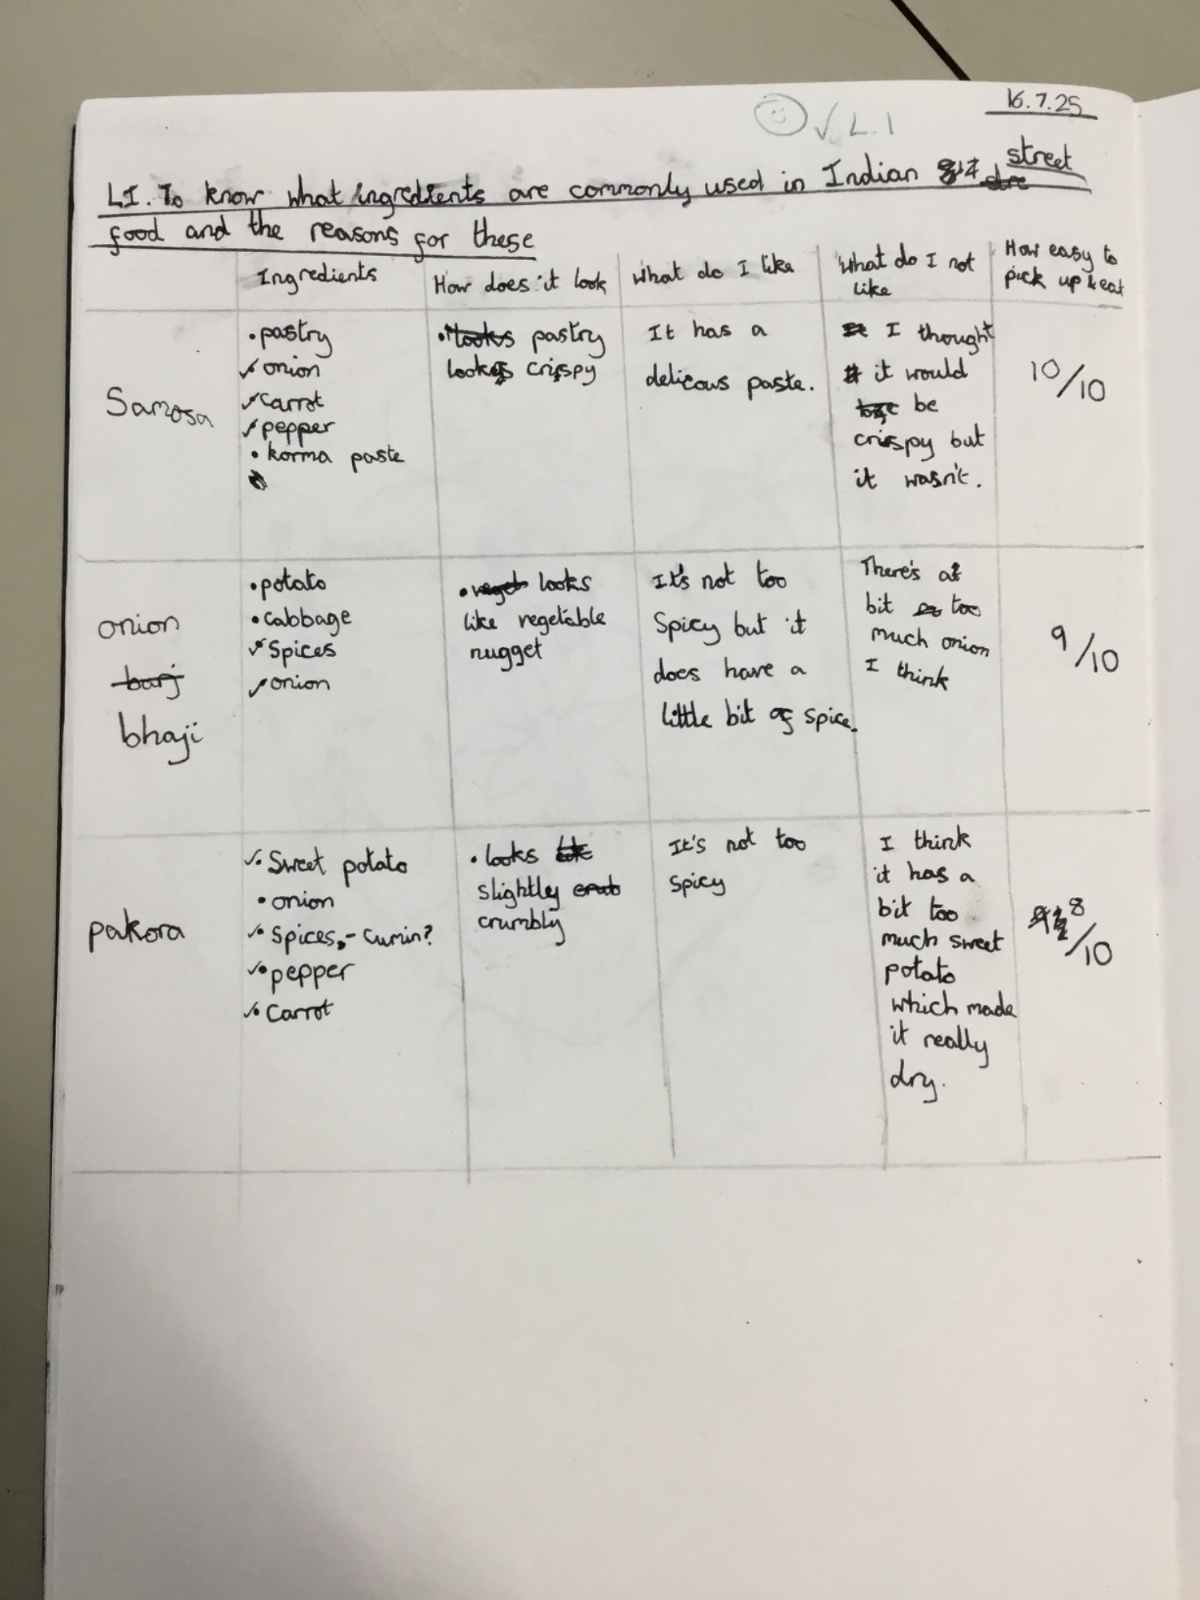 16.7.25
✓ L.I
LI. To know what ingredients are commonly used in Indian street
food and the reasons for these
Ingredients
How does it look
What do I like
What do I not
like
How easy to
pick up & eat
Samosa
• pastry
✓ onion
✓ Carrot
✓ pepper
• korma paste
• pastry
looks crispy
It has a
delicous paste.
I thought
it would
be
crispy but
it wasn't.
10/10
onion
barj
bhaji
• potato
• cabbage
✓ Spices
✓ onion
• looks
like vegetable
nugget
It's not too
Spicy but it
does have a
little bit of spice.
There's a
bit too
much onion
I think
9/10
pakora
✓• Sweet potato
• onion
✓• Spices, - Cumin?
✓• pepper
✓• Carrot
• looks
slightly
crumbly
It's not too
spicy
I think
it has a
bit too
much sweet
potato
which made
it really
dry.
8/10